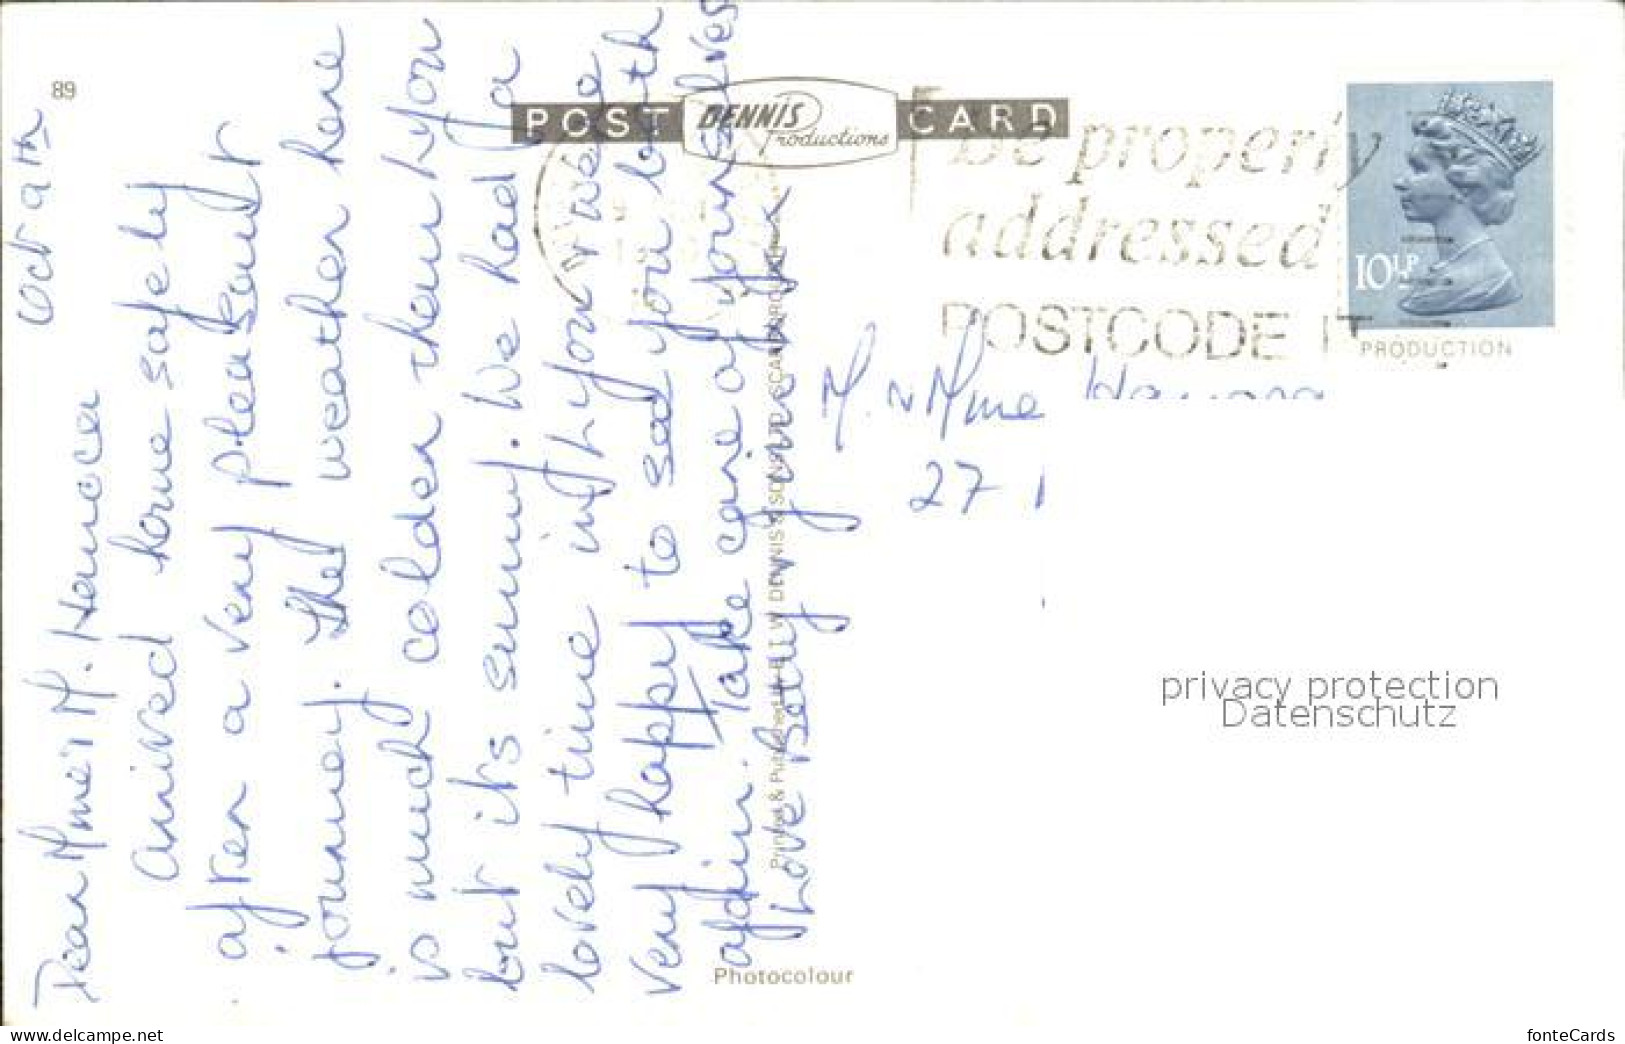 89
POST CARD
DENNIS Productions
Be properly
addressed
POSTCODE IT
10½P
PRODUCTION
Oct 9th
Dear Mme & M.
Arrived home safely
after a very pleasant
journey. The weather here
is much colder than by you
but it's sunny. We had a
lovely time with you & were
very happy to see you both
again. Take care of yourselves
Love Betty
Printed & Published
W DENNIS & SONS
SCARBOROUGH
Photocolour
M. & Mme
27
privacy protection
Datenschutz
www.delcampe.net
fonteCards